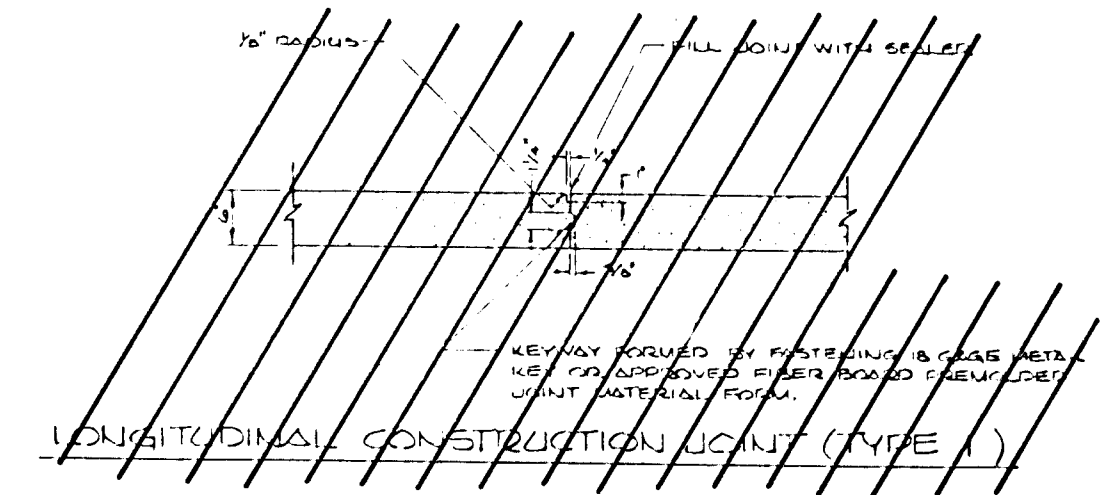 1/8" RADIUS
FILL JOINT WITH SEALER
1/4"
1"
6"
KEYWAY FORMED BY FASTENING 18 GAGE METAL
KEY OR APPROVED FIBER BOARD PREMOLDED
JOINT MATERIAL FORM.
LONGITUDINAL CONSTRUCTION JOINT (TYPE 1)